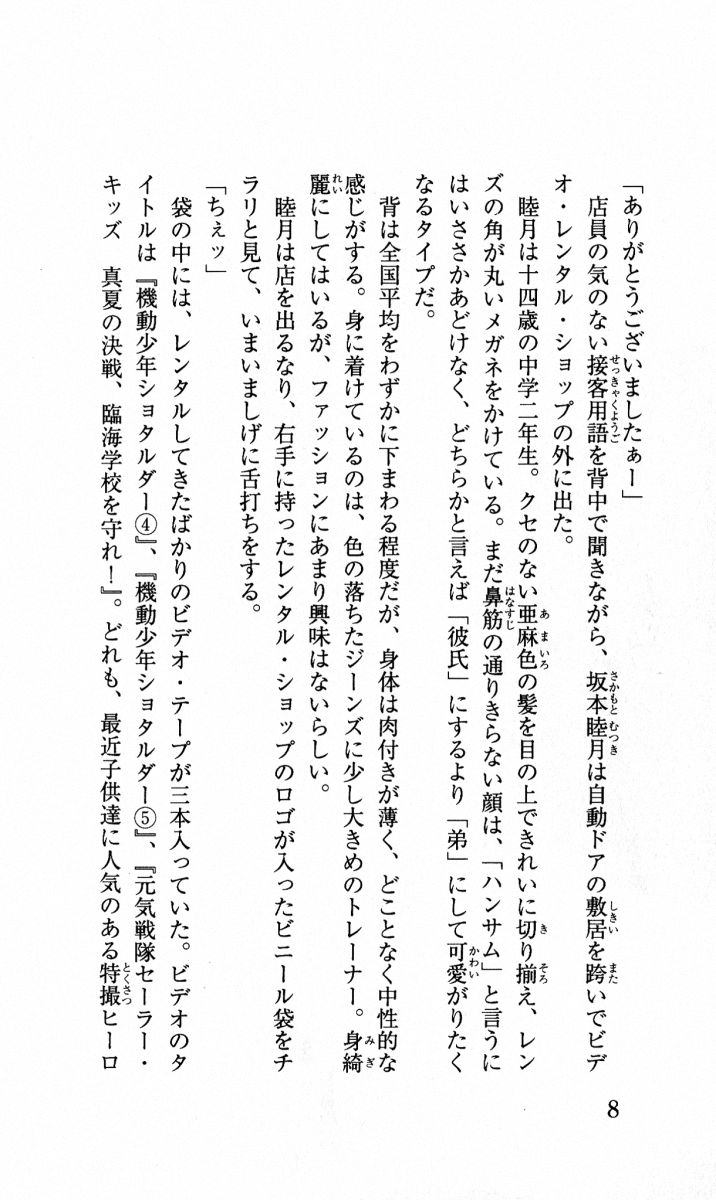 「ありがとうございましたぁー」
店員の気のない接客用語を背中で聞きながら、坂本睦月は自動ドアの敷居を跨いでビデ
オ・レンタル・ショップの外に出た。
睦月は十四歳の中学二年生。クセのない亜麻色の髪を目の上できれいに切り揃え、レン
ズの角が丸いメガネをかけている。まだ鼻筋の通りきらない顔は、「ハンサム」と言うに
はいささかあどけなく、どちらかと言えば「彼氏」にするより「弟」にして可愛がりたく
なるタイプだ。
背は全国平均をわずかに下まわる程度だが、身体は肉付きが薄く、どことなく中性的な
感じがする。身に着けているのは、色の落ちたジーンズに少し大きめのトレーナー。身綺
麗にしてはいるが、ファッションにあまり興味はないらしい。
睦月は店を出るなり、右手に持ったレンタル・ショップのロゴが入ったビニール袋をチ
ラリと見て、いまいましげに舌打ちをする。
「ちぇッ」
袋の中には、レンタルしてきたばかりのビデオ・テープが三本入っていた。ビデオのタ
イトルは『機動少年ショタルダー④』、『機動少年ショタルダー⑤』、『元気戦隊セーラー・
キッズ　真夏の決戦、臨海学校を守れ！』。どれも、最近子供達に人気のある特撮ヒーロ
8